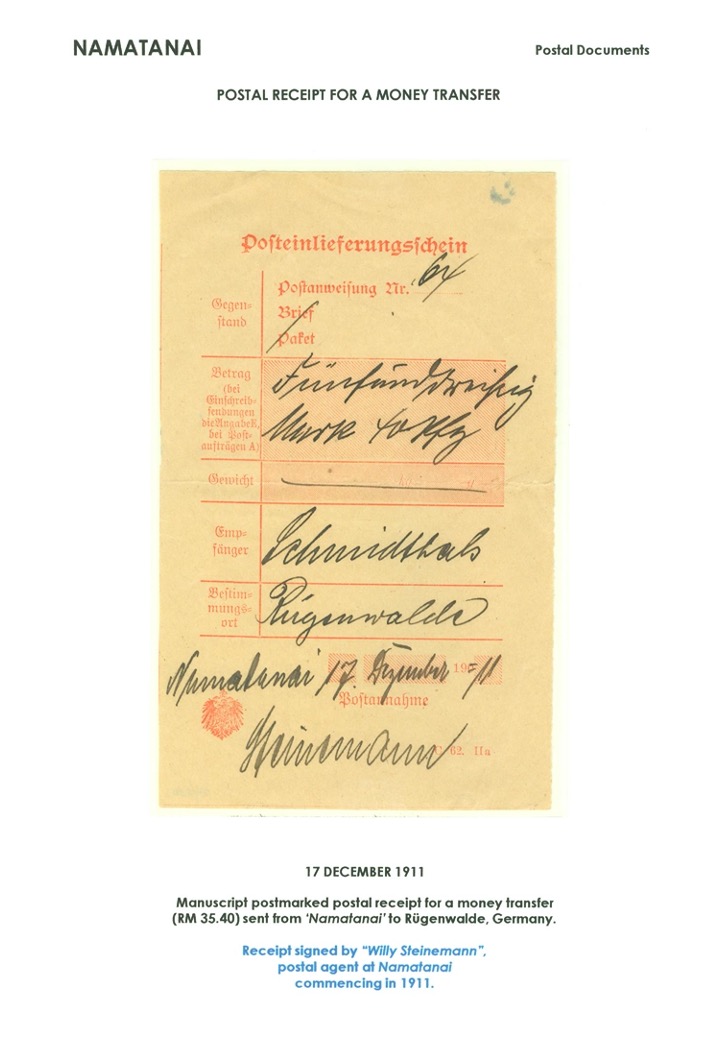 NAMATANAI
Postal Documents
POSTAL RECEIPT FOR A MONEY TRANSFER
Posteinlieferungsschein
Gegen=
stand
Postanweisung Nr. 64
Brief
Paket
Betrag
(bei
Einschreib=
sendungen
die Angabe E,
bei Post=
aufträgen A)
Fünfunddreißig
Mark 40 Pfg
Gewicht
Emp=
fänger
Schmidthals
Bestim=
mungs=
ort
Rügenwalde
Namatanai 17. Dezember 1911
Postannahme
Steinemann
C 62. IIa
17 DECEMBER 1911
Manuscript postmarked postal receipt for a money transfer
(RM 35.40) sent from ‘Namatanai’ to Rügenwalde, Germany.
Receipt signed by “Willy Steinemann”,
postal agent at Namatanai
commencing in 1911.